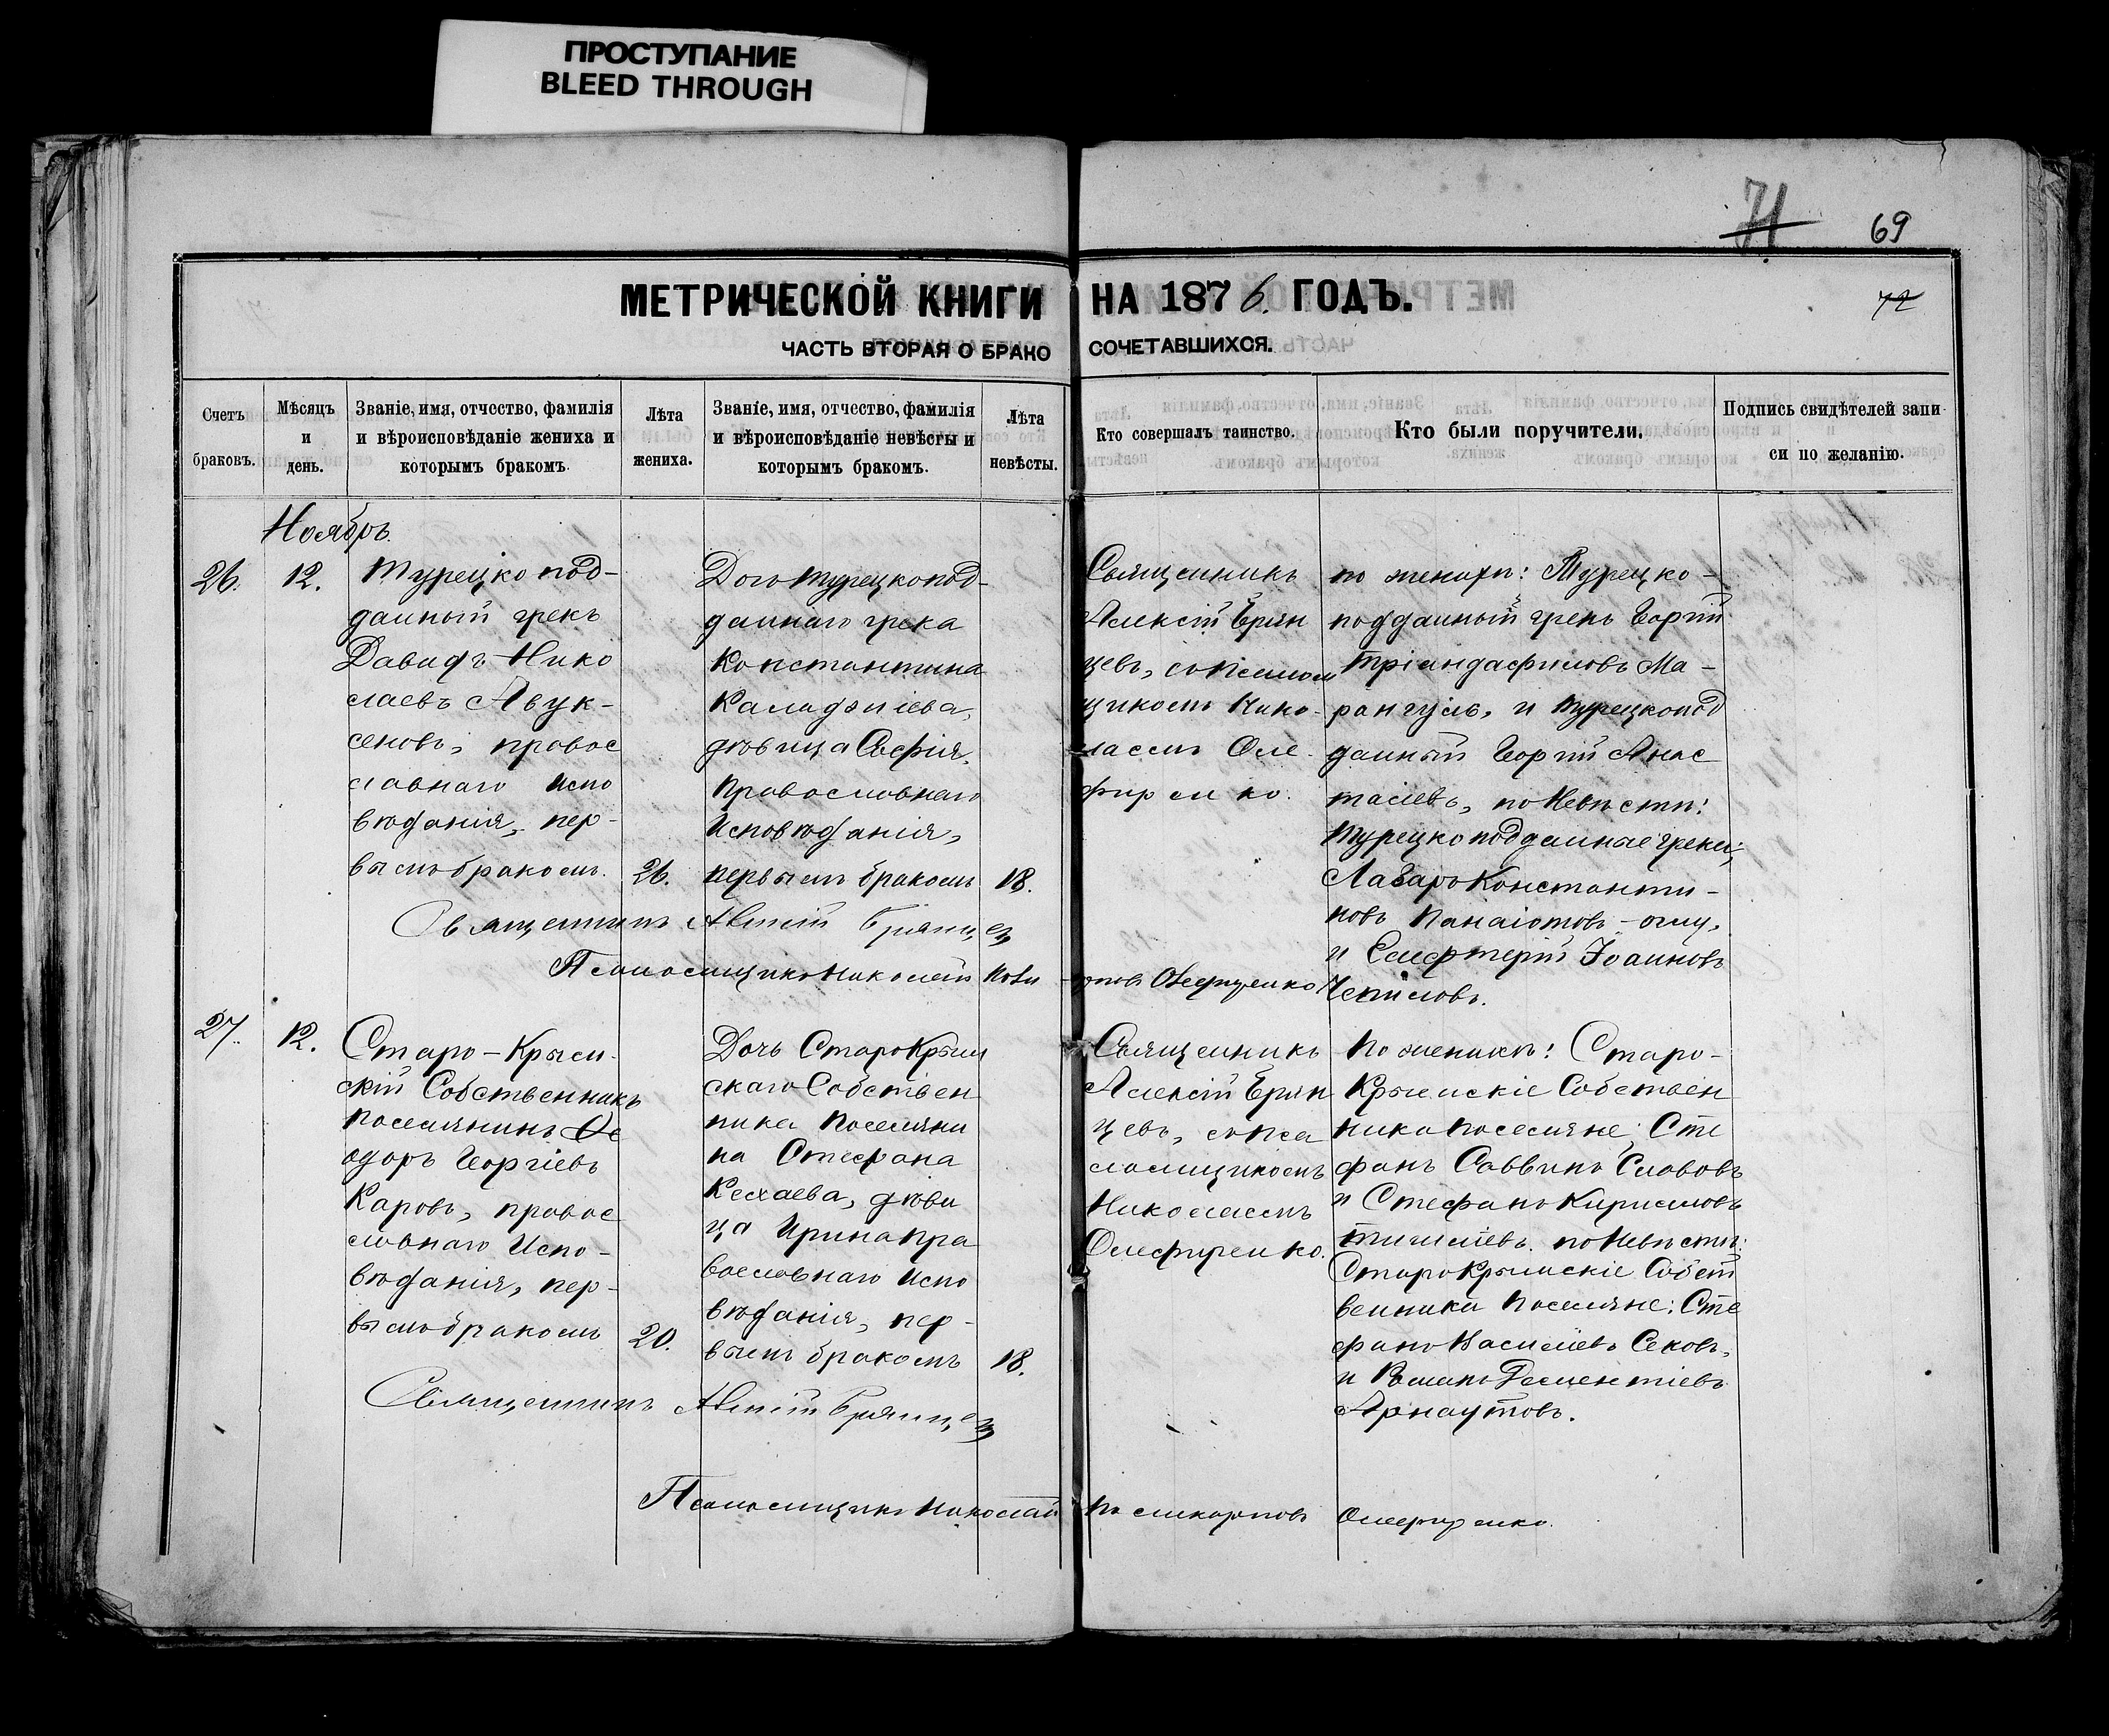 ПРОСТУПАНИЕ
BLEED THROUGH
71 69
МЕТРИЧЕСКОЙ КНИГИ НА 1876. ГОДЪ.
72
ЧАСТЬ ВТОРАЯ О БРАКОСОЧЕТАВШИХСЯ.
Счетъ браковъ.
Мѣсяцъ и день.
Званіе, имя, отчество, фамилія
и вѣроисповѣданіе жениха и
которымъ бракомъ.
Лѣта
жениха.
Званіе, имя, отчество, фамилія
и вѣроисповѣданіе невѣсты и
которымъ бракомъ.
Лѣта
невѣсты.
Кто совершалъ таинство.
Кто были поручители.
Подпись свидѣтелей запи-
си по желанію.
Ноябрь
26.
12.
Турецко под-
данный грекъ
Давидъ Нико
лаевъ Авук-
сеновъ, правос
лавнаго испо
вѣданія, пер-
вымъ бракомъ.
26.
Дочь турецкопод-
даннаго грека
Константина
Каладжіева,
дѣвица Софія,
Православнаго
Исповѣданія,
первымъ бракомъ
18.
Священникъ
Алексій Брян
цевъ, съ псалом
щикомъ Нико-
лаемъ Оле-
фиренко.
по женихѣ: Турецко-
подданный грекъ Георгій
Тріандафиловъ Ма-
рангулъ, и турецкопод
данный Георгій Анас
тасіевъ, по Невѣстѣ:
Турецко подданные греки;
Лазарь Константи-
новъ Панаіотовъ-оглу,
и Елефтерій Іоанновъ
Священникъ Алексій Брянцев
Псаломщикъ Николай Олефиренко
27.
12.
Старо-Крым-
скій Собственникъ
поселянинъ Ѳе
одоръ Георгіевъ
Каровъ, правос
лавнаго Испо-
вѣданія, пер-
вымъ бракомъ
20.
Дочь Старокрым
скаго Собствен
ника поселяни
на Стефана
Кехаева, дѣви
ца Ирина пра
вославнаго испо
вѣданія, пер-
вымъ бракомъ
18.
Священникъ
Алексій Брян
цевъ, съ пса
ломщикомъ
Николаемъ
Олефиренко.
По женихѣ: Старо-
Крымскіе Собствен
ники поселяне; Сте
фанъ Саввинъ Славовъ
и Стефанъ Кирилловъ
по Невѣстѣ:
Старокрымскіе Собст
венники поселяне: Сте
фанъ Василіевъ Сековъ,
и Романъ Дементіевъ
Арнаутовъ.
Священникъ Алексій Брянцев
Псаломщикъ Николай Поликарповъ Олефиренко.